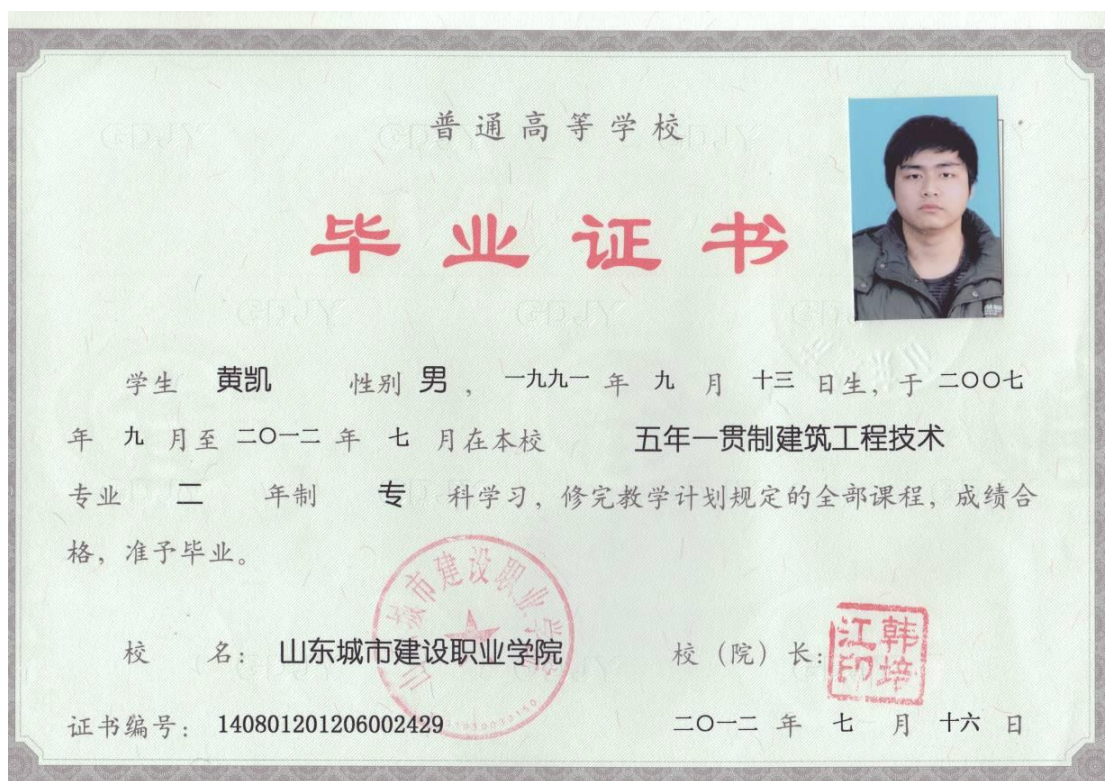 普通高等学校
毕业证书
学生 黄凯 性别 男，一九九一 年 九 月 十三 日生，于 二〇〇七
年 九 月至 二〇一二 年 七 月在本校 五年一贯制建筑工程技术
专业 二 年制 专 科学习，修完教学计划规定的全部课程，成绩合
格，准予毕业。
山东城市建设职业学院
校 名：山东城市建设职业学院 校（院）长：韩培江印
证书编号：140801201206002429 二〇一二 年 七 月 十六 日